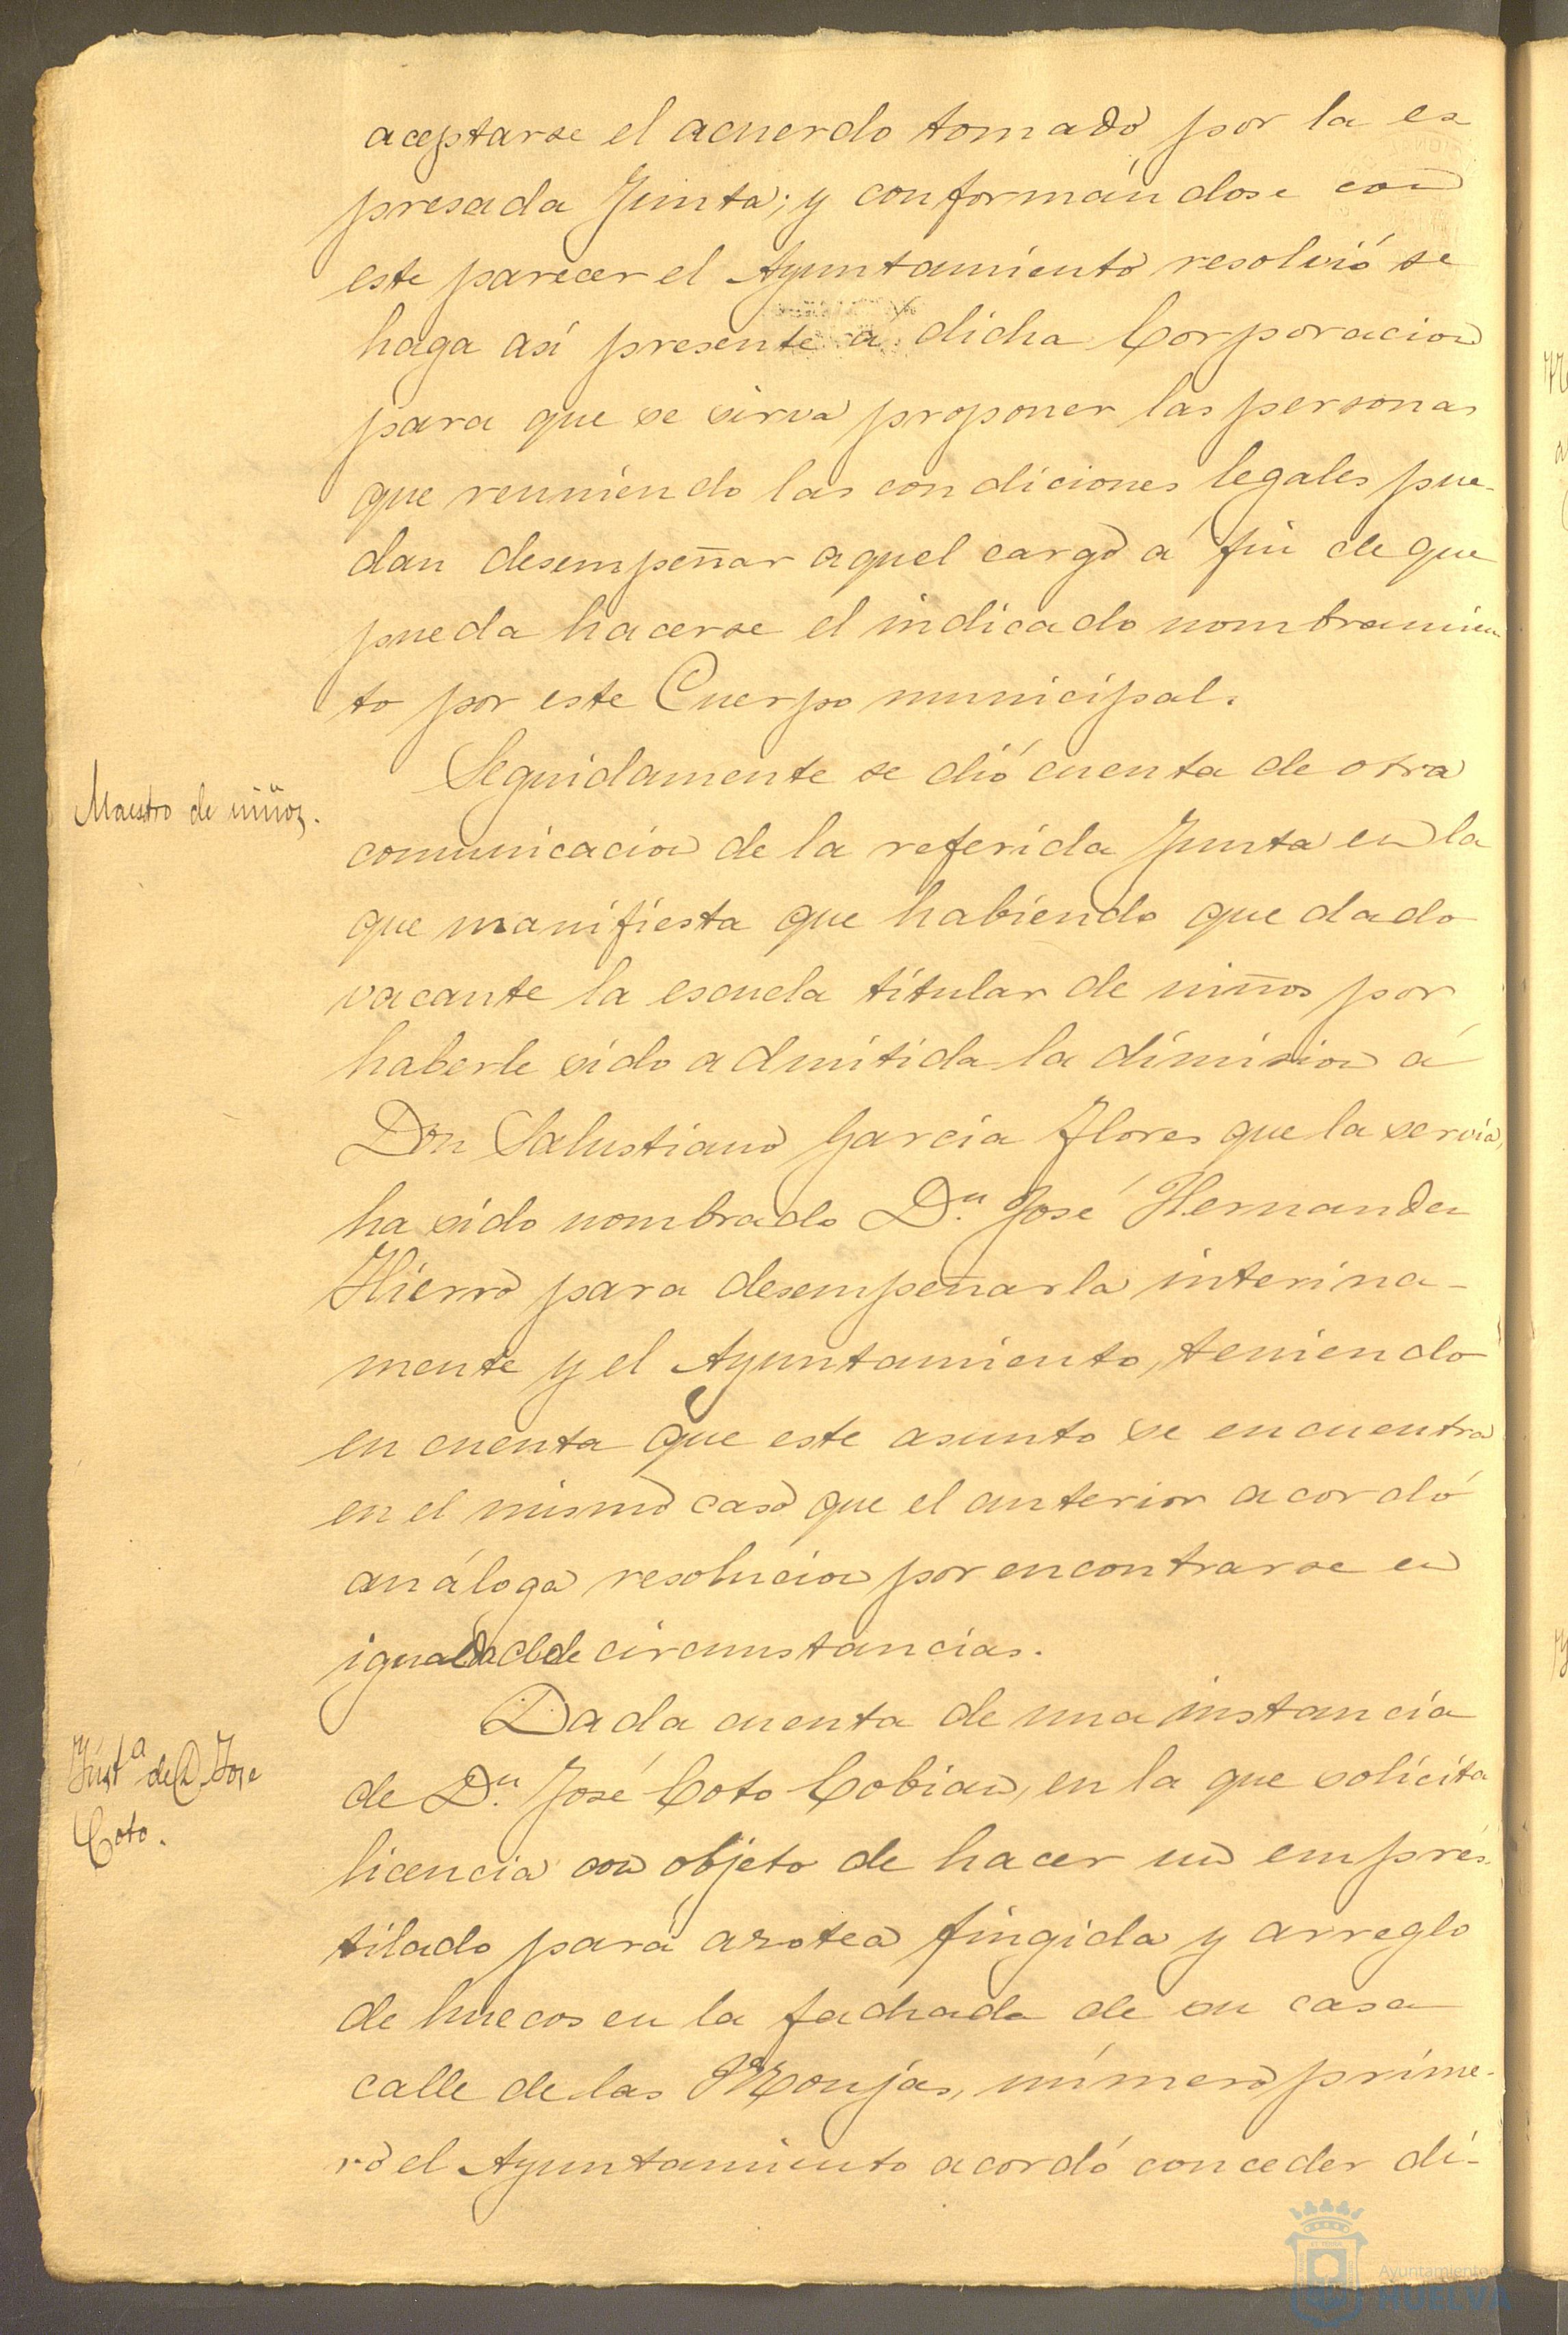 aceptarse el acuerdo tomado por la es
presada Junta; y conformándose con
este parecer el Ayuntamiento resolvió se
haga así presente á dicha Corporacion
para que se sirva proponer las personas
que reuniendo las condiciones legales pue-
dan desempeñar aquel cargo á fin de que
pueda hacerse el indicado nombramien
to por este Cuerpo municipal.
Maestro de niños.
Seguidamente se dió cuenta de otra
comunicacion de la referida Junta en la
que manifiesta que habiendo quedado
vacante la escuela titular de niños por
haberle sido admitida la dimision á
Don Salustiano Garcia Flores que la servia,
ha sido nombrado D.n José Hernandez
Hierro para desempeñarla interina-
mente y el Ayuntamiento, teniendo
en cuenta que este asunto se encuentra
en el mismo caso que el anterior acordó
análoga resolucion por encontrarse en
igualdad de circunstancias.
Inst.a de D. Jose
Coto.
Dada cuenta de una instancia
de D.n José Coto Cobian, en la que solicita
licencia con objeto de hacer un emprés-
tilado para azotea fingida y arreglo
de huecos en la fachada de su casa
calle de las Monjas, número prime-
ro el Ayuntamiento acordó conceder di-
Ayuntamiento
HUELVA